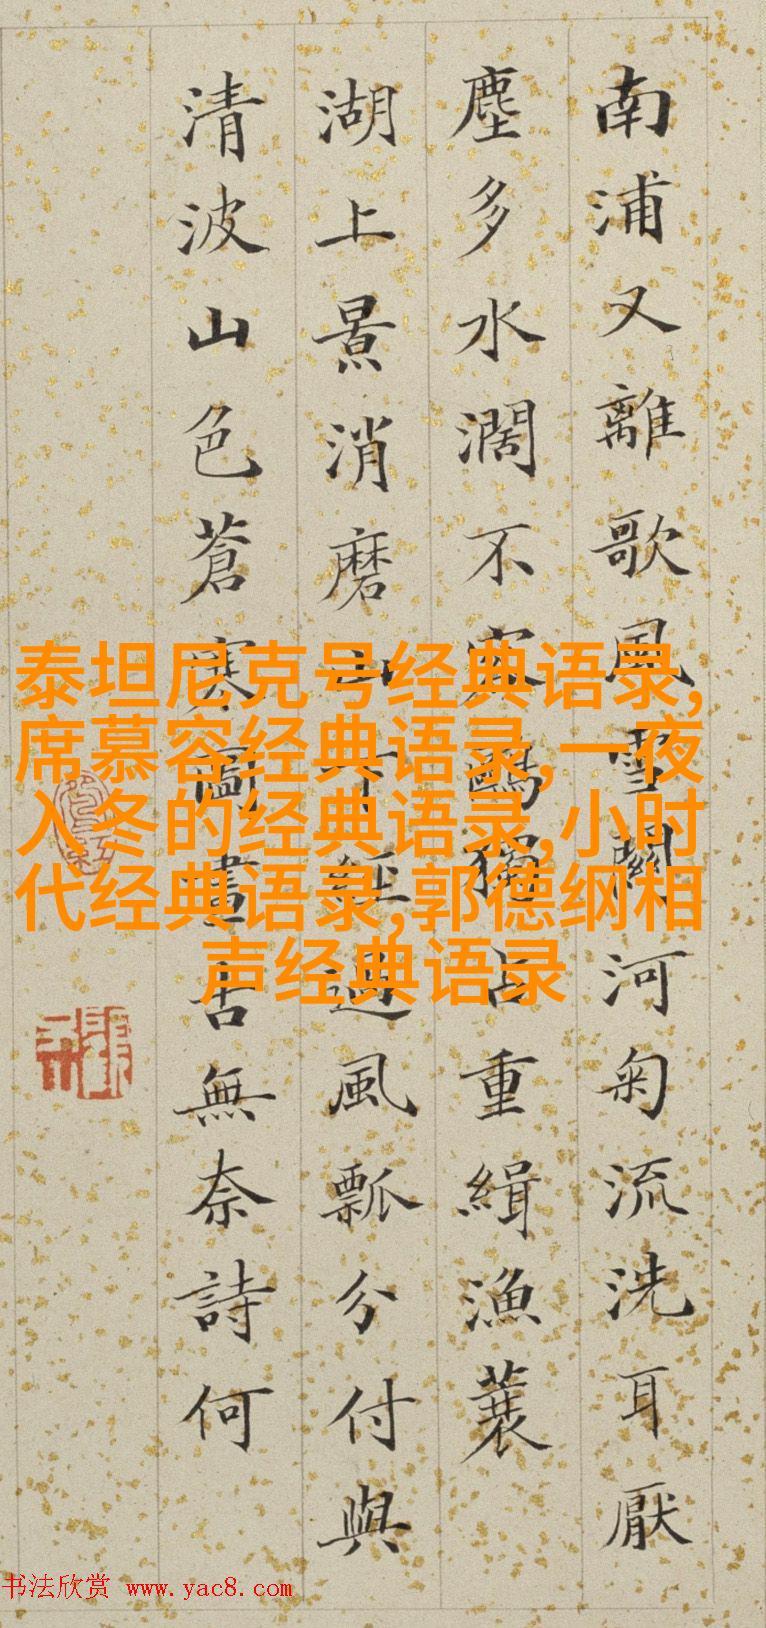 南浦又離歌風雪關河匊流洗耳厭
塵多水濶不鷗獨占重緝漁蓑
湖上景消磨經過風瓢分付與
清波山色蒼寒畫無奈詩何
泰坦尼克号经典语录,
席慕容经典语录,一夜
入冬的经典语录,小时
代经典语录,郭德纲相
声经典语录
书法欣赏 www.yac8.com